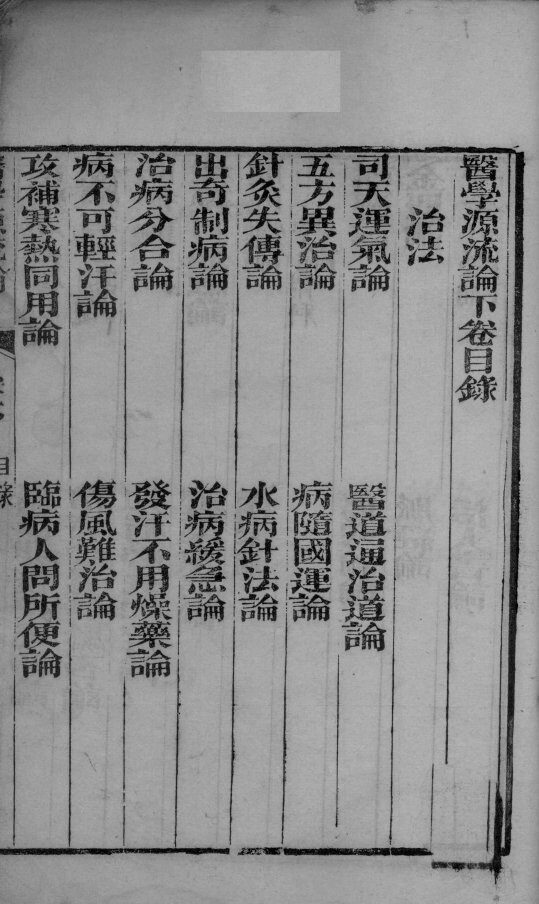 醫學源流論下卷目錄
治法
司天運氣論 醫道通治道論
五方異治論 病隨國運論
針灸失傳論 水病針法論
出奇制病論 治病緩急論
治病分合論 發汗不用燥藥論
病不可輕汗論 傷風難治論
攻補寒熱同用論 臨病人問所便論
目錄